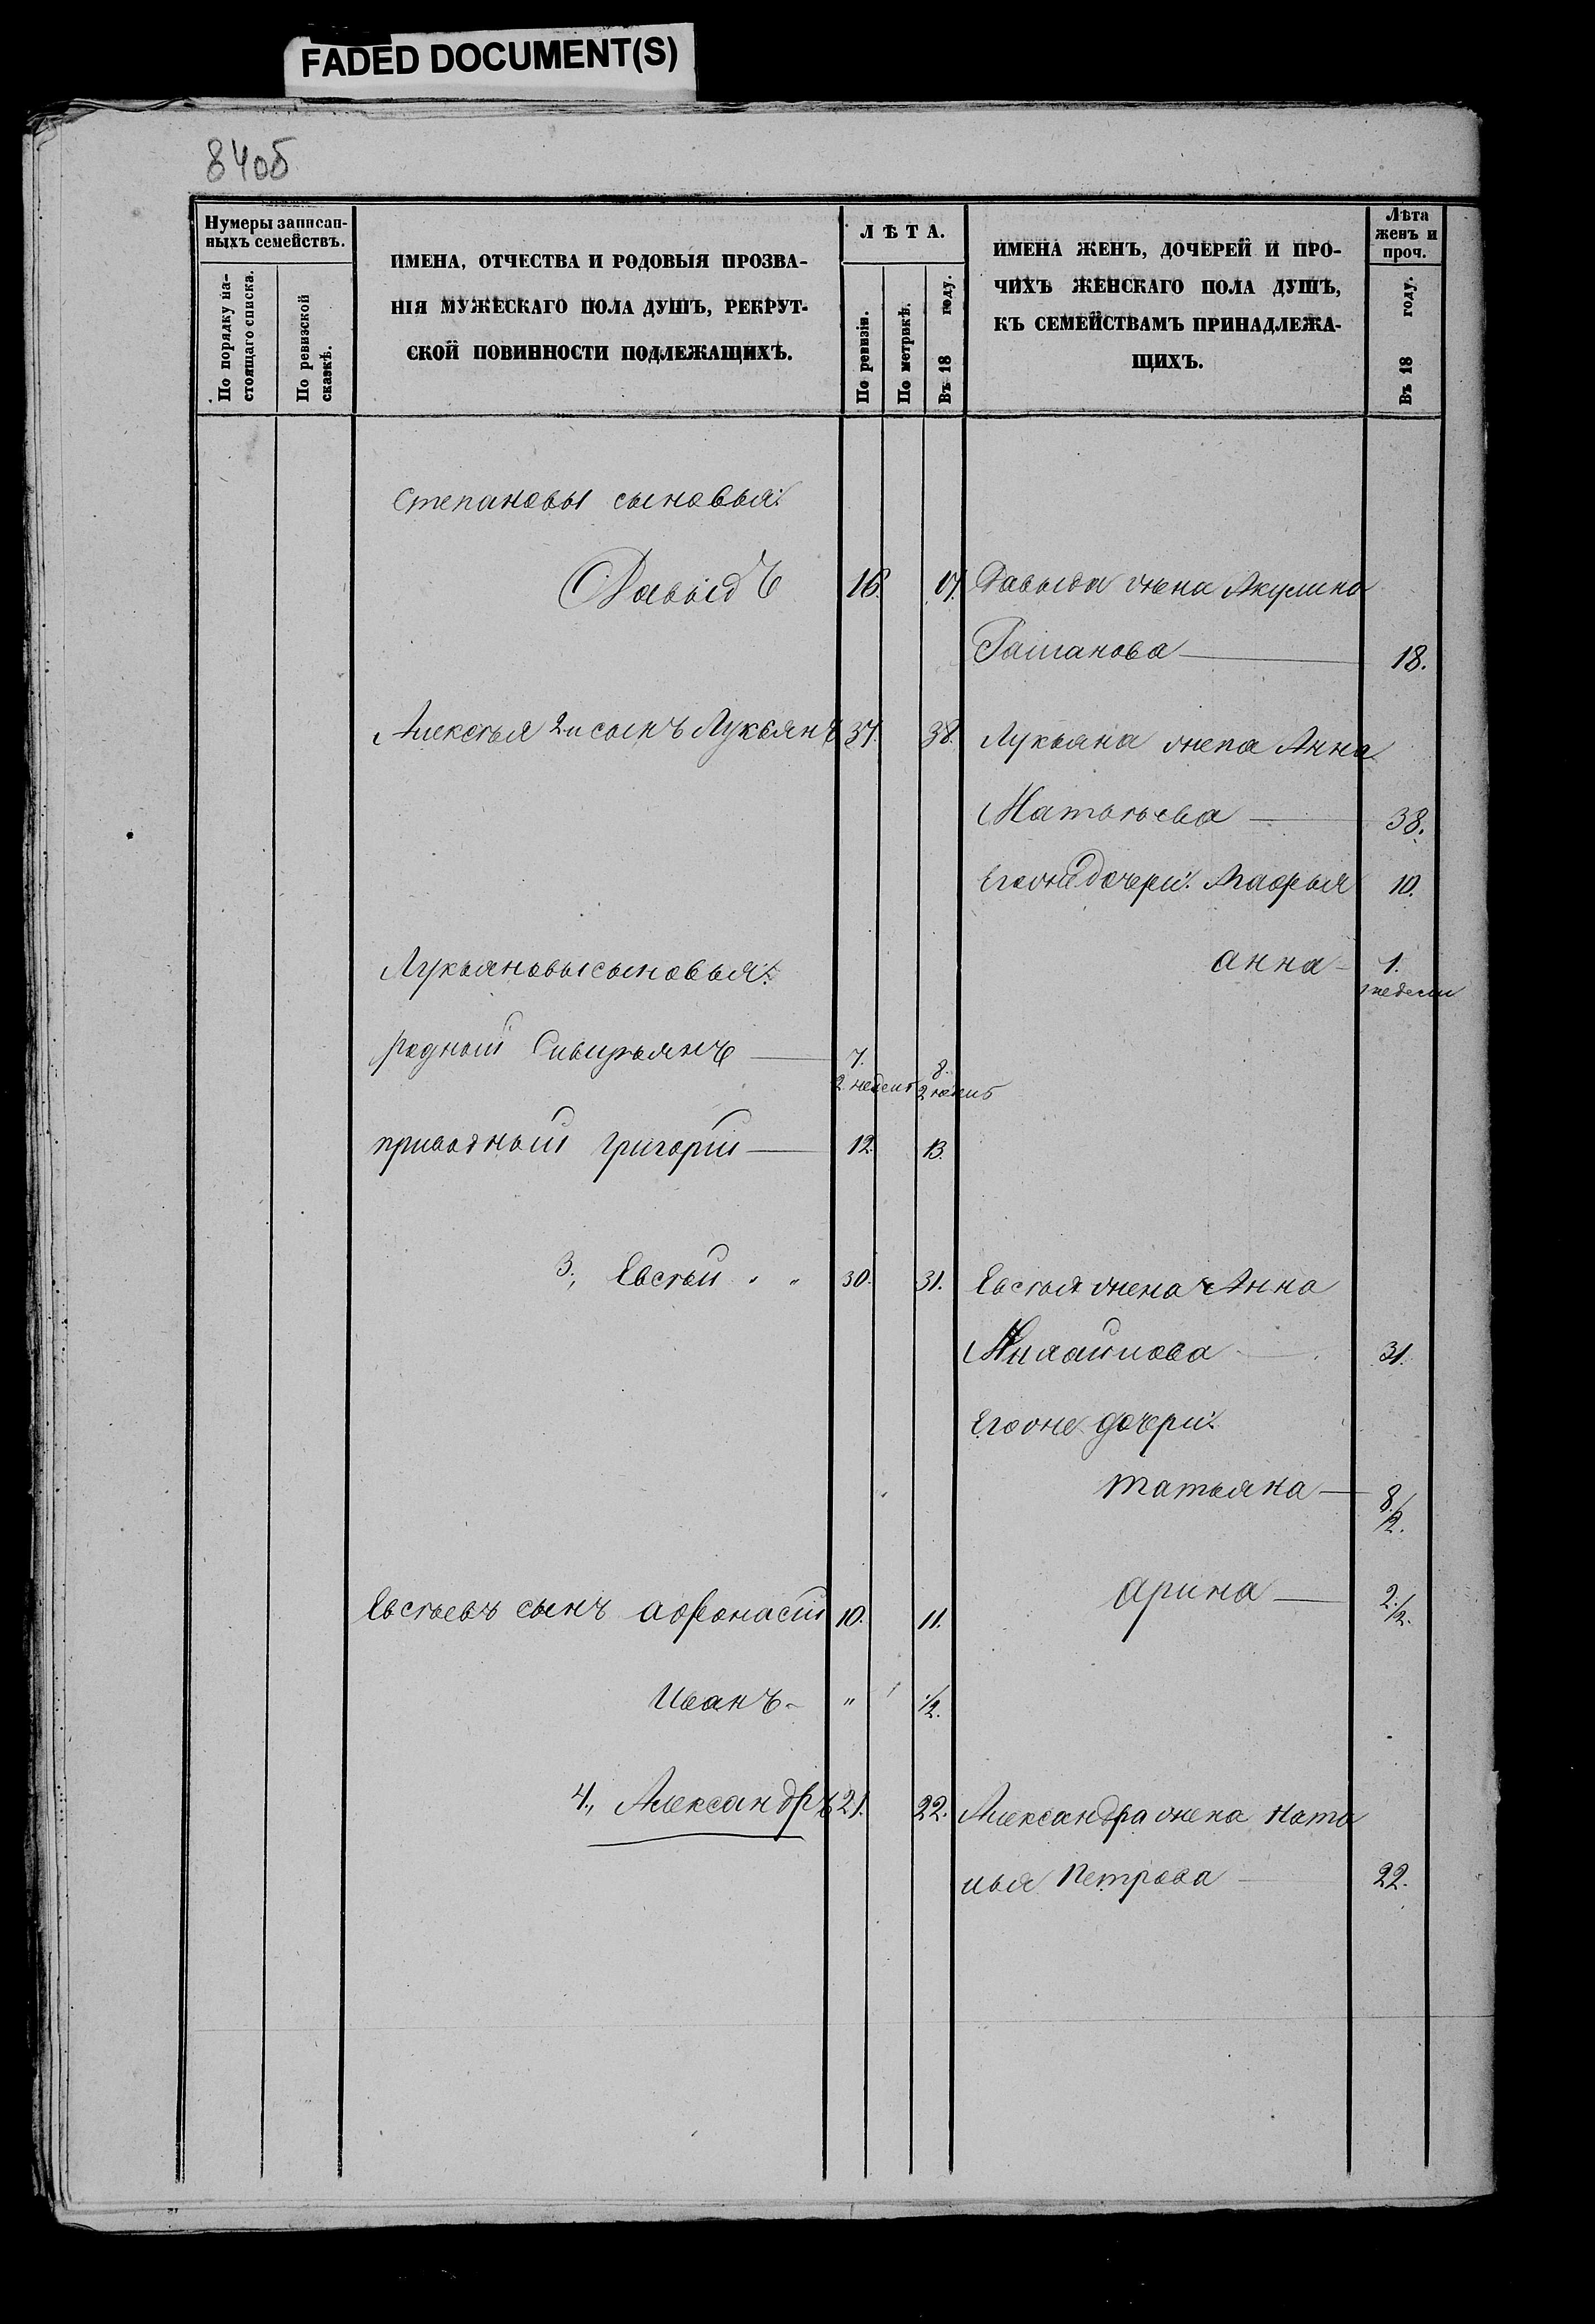 FADED DOCUMENT(S)
84об
Нумеры записан-
ныхъ семействъ.
По порядку на-
стоящаго списка.
По ревизской
сказкѣ.
ИМЕНА, ОТЧЕСТВА И РОДОВЫЯ ПРОЗВА-
НІЯ МУЖЕСКАГО ПОЛА ДУШЪ, РЕКРУТ-
СКОЙ ПОВИННОСТИ ПОДЛЕЖАЩИХЪ.
ЛѢТА.
По ревизіи.
По метрикѣ.
Въ 18 году.
ИМЕНА ЖЕНЪ, ДОЧЕРЕЙ И ПРО-
ЧИХЪ ЖЕНСКАГО ПОЛА ДУШЪ,
КЪ СЕМЕЙСТВАМЪ ПРИНАДЛЕЖА-
ЩИХЪ.
Лѣта
женъ и
проч.
Въ 18 году.
Степановы сыновья:
Давыдъ 16. 17. Давыда жена Акулина
18.
Алексѣя 2й сынъ Лукьянъ 37. 38. Лукьяна жена Анна
Матвѣева 38.
Егоже дочери: Марья 10.
анна 1.
недели
Лукьяновы сыновья:
родный 7. 8.
2 недел 2 недел
приводный григорій 12. 13.
3., Евсѣй " " 30. 31. Евсѣя жена Анна
31.
Егоже дочери:
татьяна 8 1/2.
арина 2. 1/2.
Евсѣевъ сынъ афонасій 10. 11.
Иванъ " 1/2.
4., Александръ 21. 22. Александра жена Ната
лья Петрова 22.